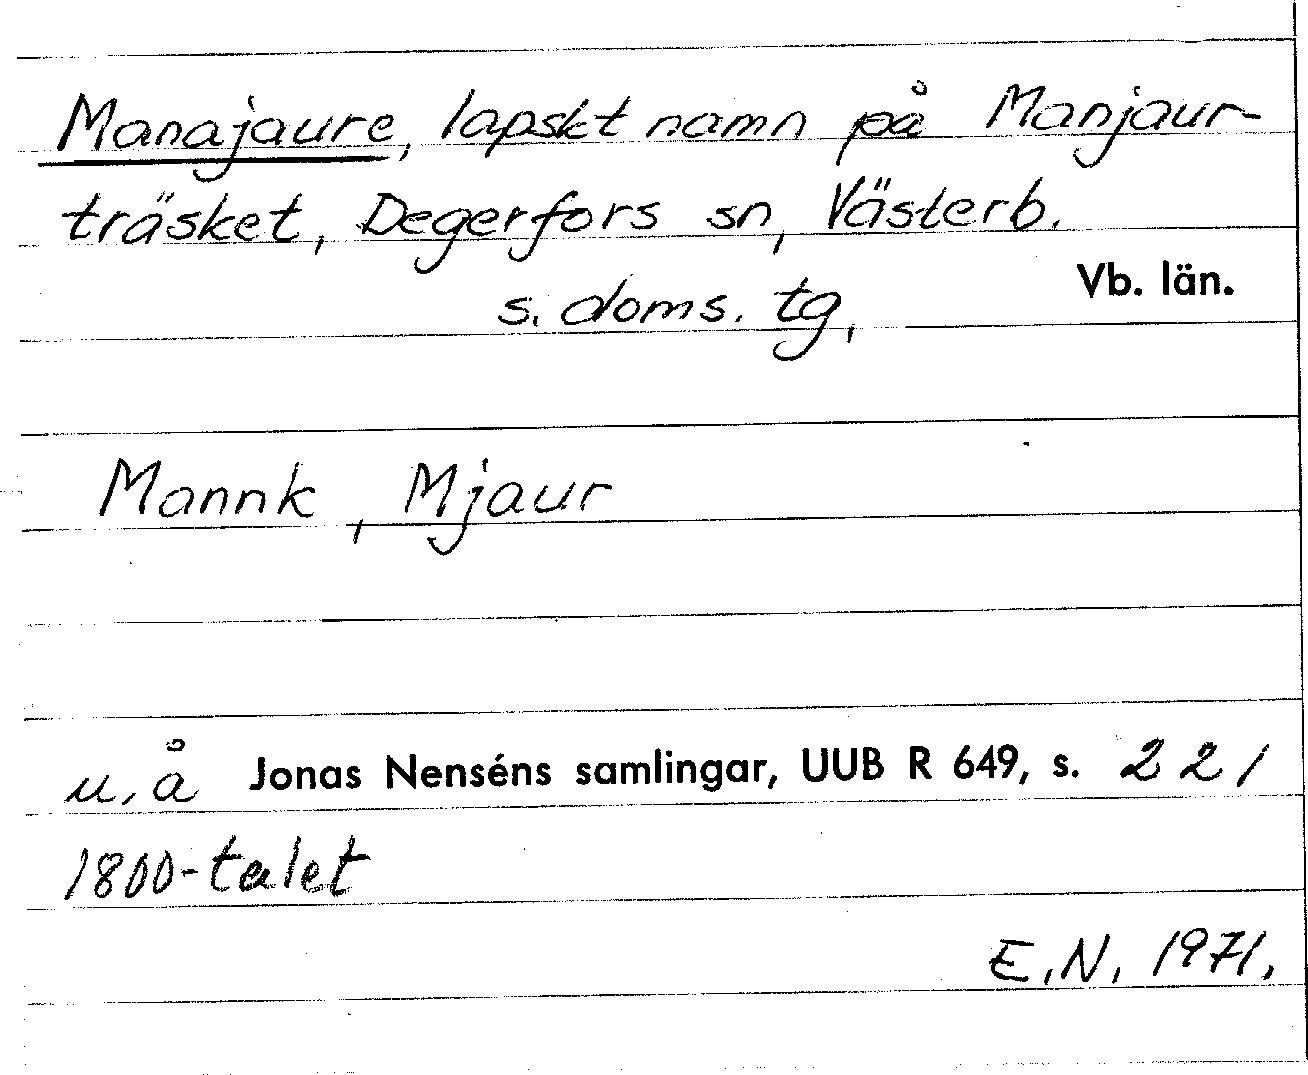 Manajaure, lapskt namn på Manjaur-
träsket, Degerfors sn, Västerb.
Vb. län.
s. doms. tg,
Mannk, Mjaur
u.å Jonas Nenséns samlingar, UUB R 649, s. 221
1800-talet
E.N. 1971.